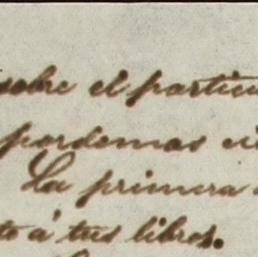 sobre el particu
pordemas
La primera
to á tus libros.